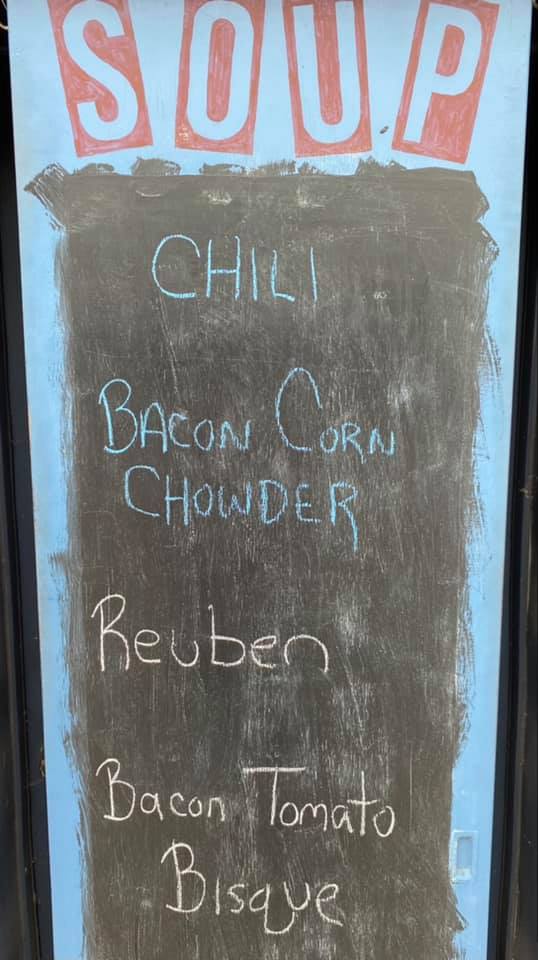 SOUP
CHILI
BACON CORN
CHOWDER
Reuben
Bacon Tomato
Bisque